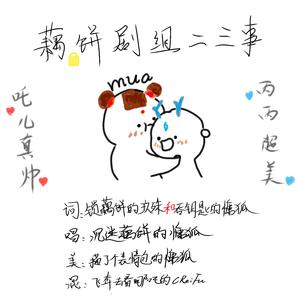 藕饼剧组二三事
mua
吒儿真帅
丙丙超美
词：锁藕饼的玖床和吞钥匙的懒狐
唱：沉迷藕饼的懒狐
美：搞了个表情包的懒狐
混：飞奔去看哪吒的CRiFu